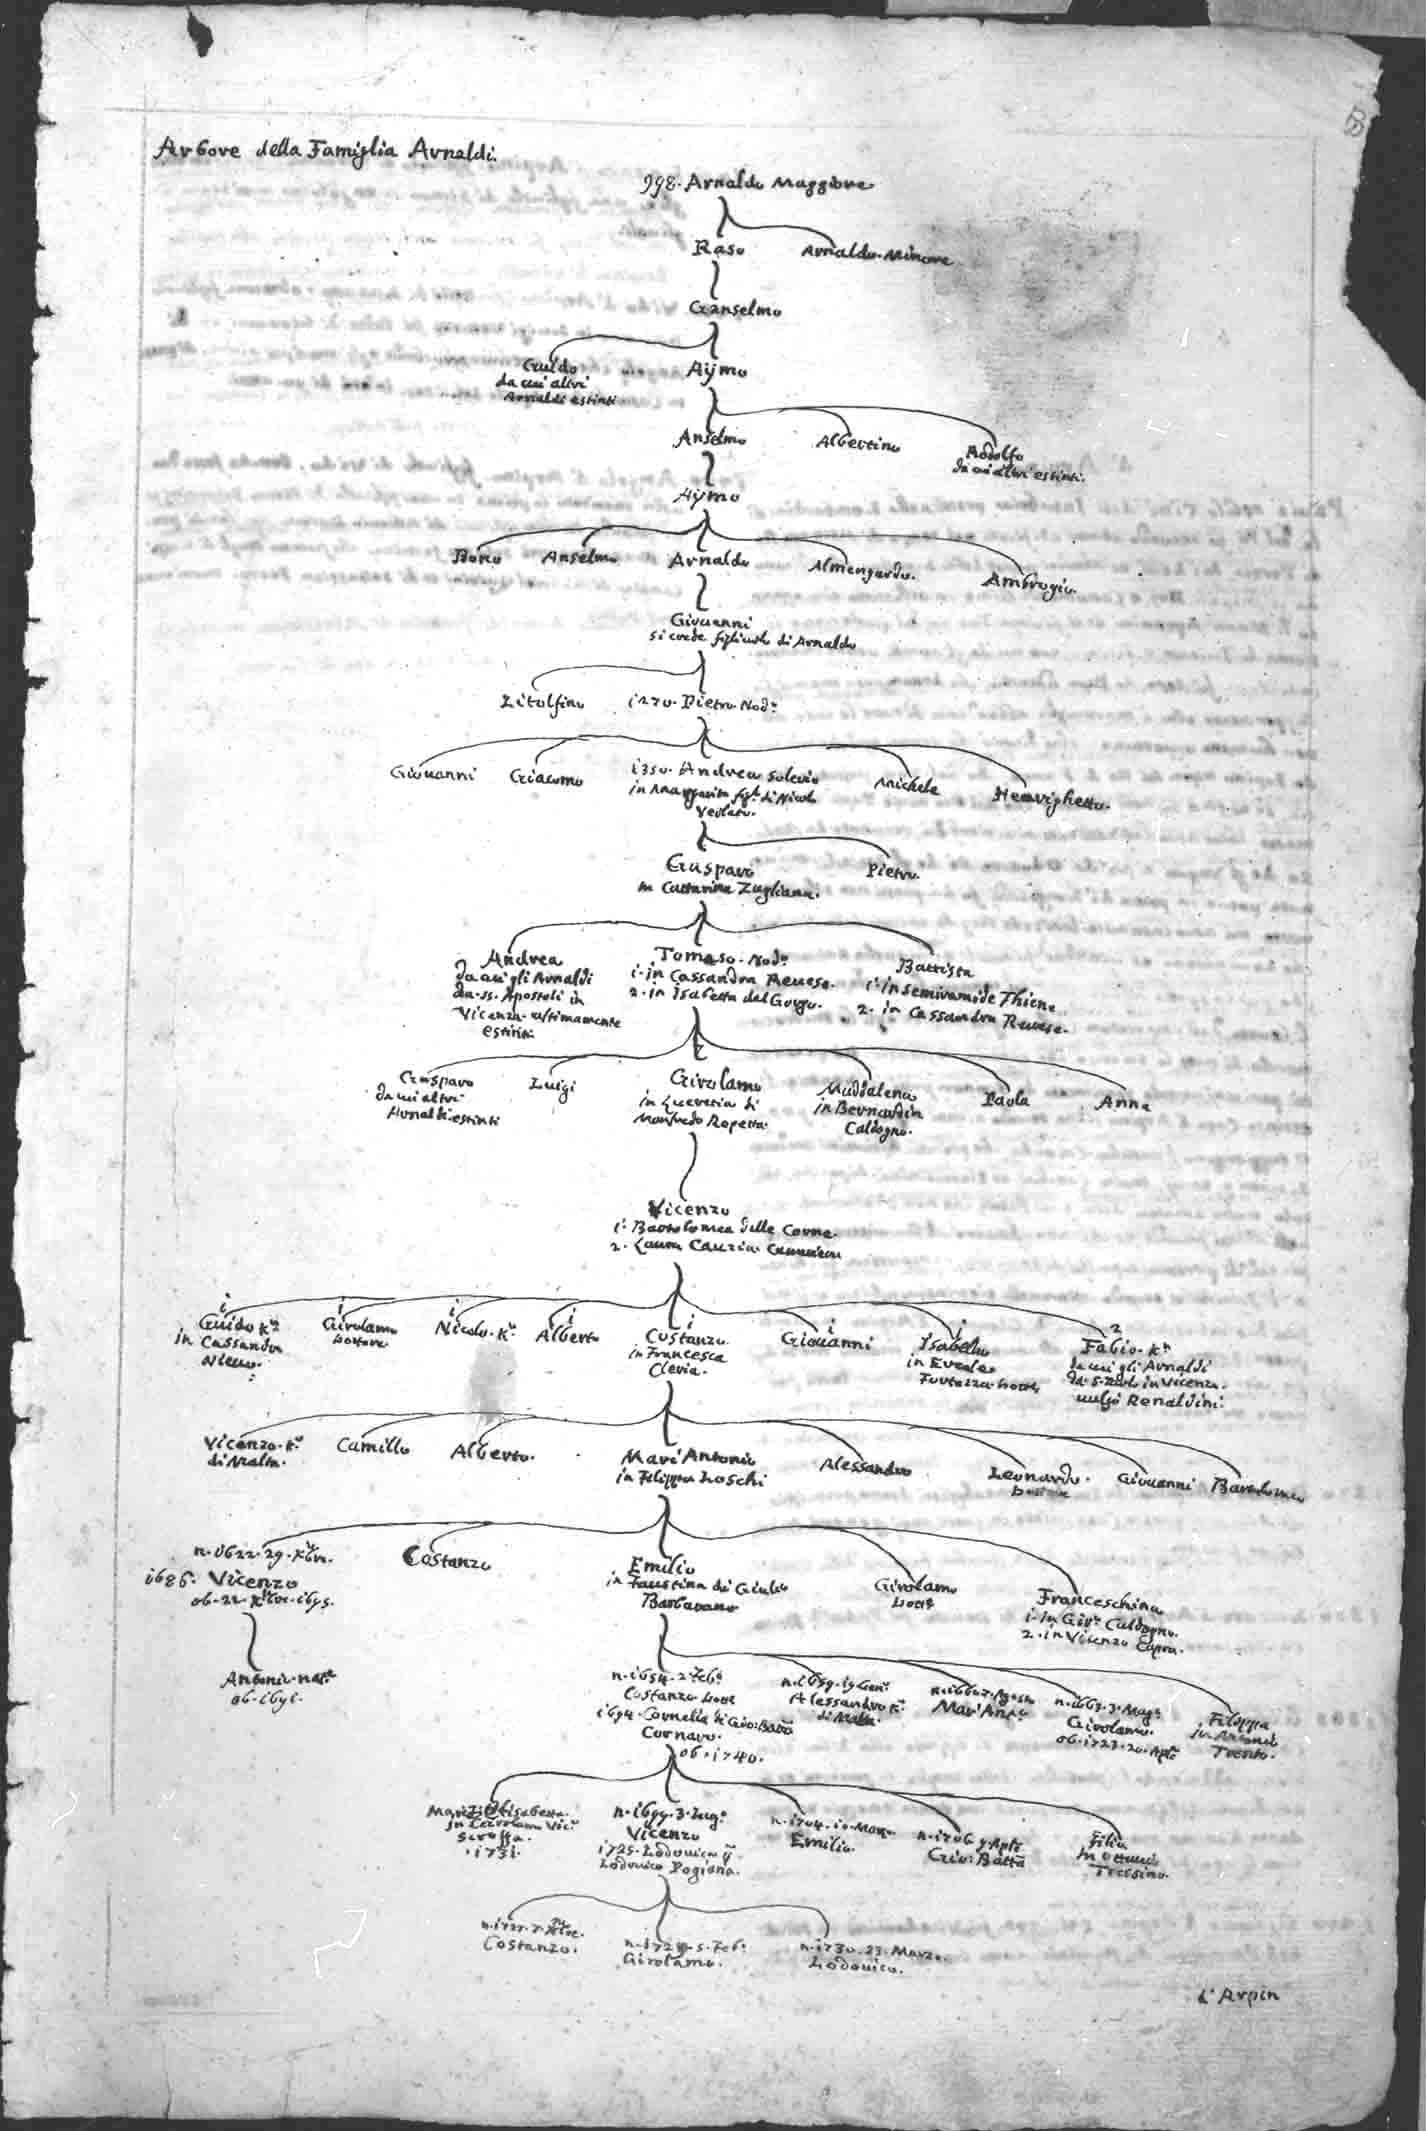 Arbore della Famiglia Arnaldi.
998. Arnaldo Maggiore
Raso
Arnaldo Minore
Ganselmo
Guido
da cui altri
Arnaldi estinti
Aÿmo
Anselmo
Albertino
Rodolfo
da cui altri estinti.
Aÿmo
Bono
Anselmo
Arnaldo
Almengardo.
Ambrogio.
Giouanni
si crede figliuolo di Arnaldo
Litolfino
i270. Pietro Nodº
Giouanni
Giacomo
i350. Andrea
in Margarita figª di Nicolo
Michele
Henrighetto.
Gasparo
in Cattarina Zugliana.
Pietro.
Andrea
da cui gli Arnaldi
da ss. Apostoli in
Vicenza ultimamente
estinti.
Tomaso Nodº
i. in Cassandra Reuese.
2. in Isabetta dal Gorgo.
Battista
i. in Semiramide Thiene
2. in Cassandra Reuese.
Gasparo
da cui altri
Arnaldi estinti
Luigi
Girolamo
in Lucretia di
Manfredo Repetta.
Maddalena
in Bernardin
Caldogno.
Paola
Anna
Vicenzo
i. Bartolomea dalle Corne.
2. Laura
i
Guido Kr
in Cassandra
i
Girolamo
Dottore
i
Nicolo. Kr
i
Alberto
i
Costanzo
in Francesca
Cleria.
i
Giouanni
i
Isabella
in Eucole
2
Fabio. Kr
da cui gli Arnaldi
in Vicenza.
uulgò Renaldini.
Vicenzo. Kr
di Malta.
Camillo
Alberto.
Marc'Antonio
in Filippa Loschi
Alessandro
Leonardo.
Giouanni
Bartolomeo
n. i622. 29.
i686. Vicenzo
ob. 22. i695.
Costanzo
Emilio
in Faustina di Giulio
Barbarano
Girolamo
Dotte
Franceschina
i. in Gioº Caldogno.
2. in Vicenzo Capra.
Antonio natle
ob. i691.
n. i654. 2. Febº
Costanzo Dotte
i694. Cornelia di Gio: Batta
Cornaro.
ob. i740.
n. i659. i9 Genº
Alessandro Kr
di Malta.
n. i660. 7. Agosto
Mar'Antº
n. i663. 3. Magº
Girolamo.
ob. i723. 20. Aple
Filippa
in Antonio
Trento.
Maria Elisabetta
in Girolamo Vicº
Scroffa.
i731.
n. i699. 3. Lugº
Vicenzo
i725. Lodouica q.
Lodouico Pogiana.
n. i704. i0. Marzo
Emilio.
n. i706 9. Aple
Gio: Batta
in Ottauio
Trissino.
Costanzo.
5. Febº
Girolamo.
n. i730. 23. Marzo.
Lodouico.
d'Arpin